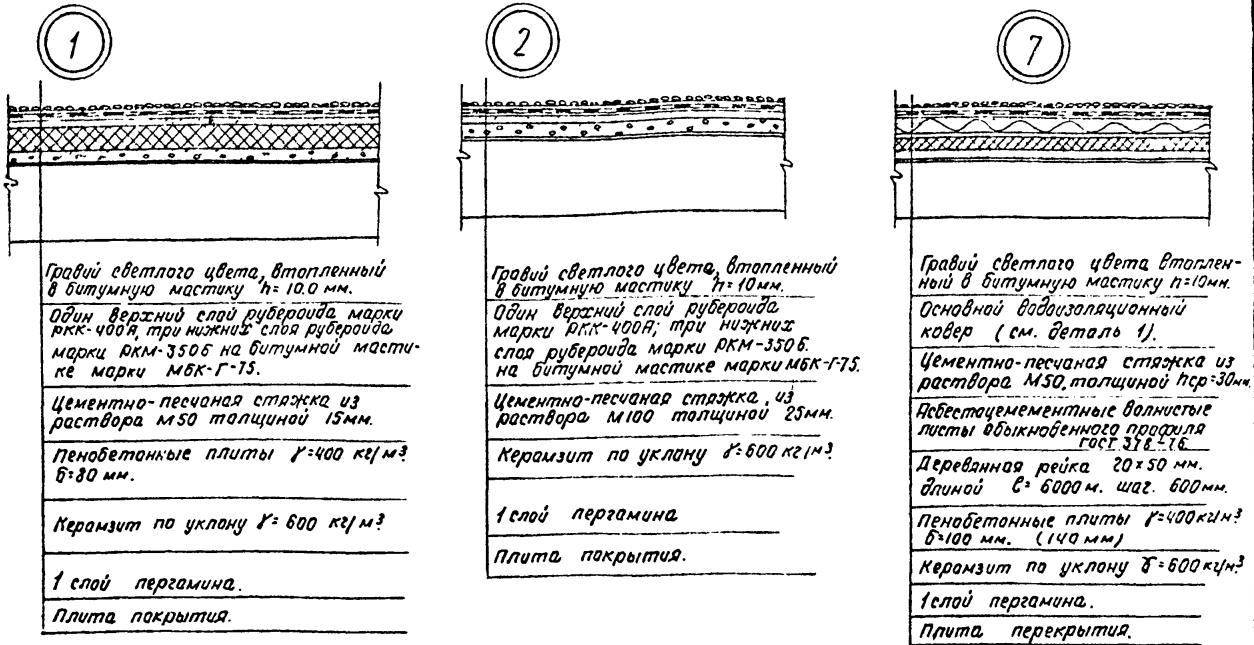 1
Гравий светлого цвета, втопленный
в битумную мастику h=10.0 мм.
Один верхний слой рубероида марки
РКК-400А, три нижних слоя рубероида
марки РКМ-350б на битумной масти-
ке марки МБК-Г-75.
Цементно-песчаная стяжка из
раствора М50 толщиной 15мм.
Пенобетонные плиты γ=400 кг/м³
б=80 мм.
Керамзит по уклону γ=600 кг/м³
1 слой пергамина.
Плита покрытия.
2
Гравий светлого цвета, втопленный
в битумную мастику h=10мм.
Один верхний слой рубероида
марки РКК-400А; три нижних
слоя рубероида марки РКМ-350б.
на битумной мастике марки МБК-Г-75.
Цементно-песчаная стяжка, из
раствора М100 толщиной 25мм.
Керамзит по уклону γ=600 кг/м³
1 слой пергамина
Плита покрытия.
7
Гравий светлого цвета втоплен-
ный в битумную мастику h=10мм.
Основной водоизоляционный
ковер (см. деталь 1).
Цементно-песчаная стяжка из
раствора М50, толщиной hср=30мм
Асбестоцемементные волнистые
листы обыкновенного профиля
ГОСТ 378-76
Деревянная рейка 20×50 мм.
длиной ℓ=6000м. шаг. 600мм.
Пенобетонные плиты γ=400кг/м³
б=100 мм. (140 мм)
Керамзит по уклону γ=600кг/м³
1 слой пергамина.
Плита перекрытия.